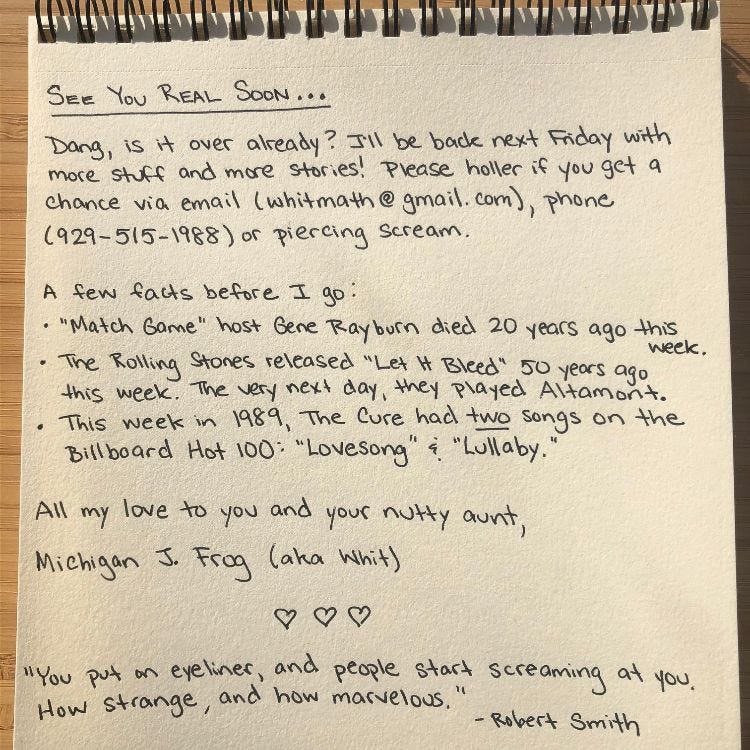 SEE YOU REAL SOON...
Dang, is it over already? I'll be back next Friday with
more stuff and more stories! Please holler if you get a
chance via email (whitmath@gmail.com), phone
(929-515-1988) or piercing scream.
A few facts before I go:
• "Match Game" host Gene Rayburn died 20 years ago this
week.
• The Rolling Stones released "Let It Bleed" 50 years ago
this week. The very next day, they played Altamont.
• This week in 1989, The Cure had two songs on the
Billboard Hot 100: "Lovesong" & "Lullaby."
All my love to you and your nutty aunt,
Michigan J. Frog (aka Whit)
♡ ♡ ♡
"You put on eyeliner, and people start screaming at you.
How strange, and how marvelous."
- Robert Smith